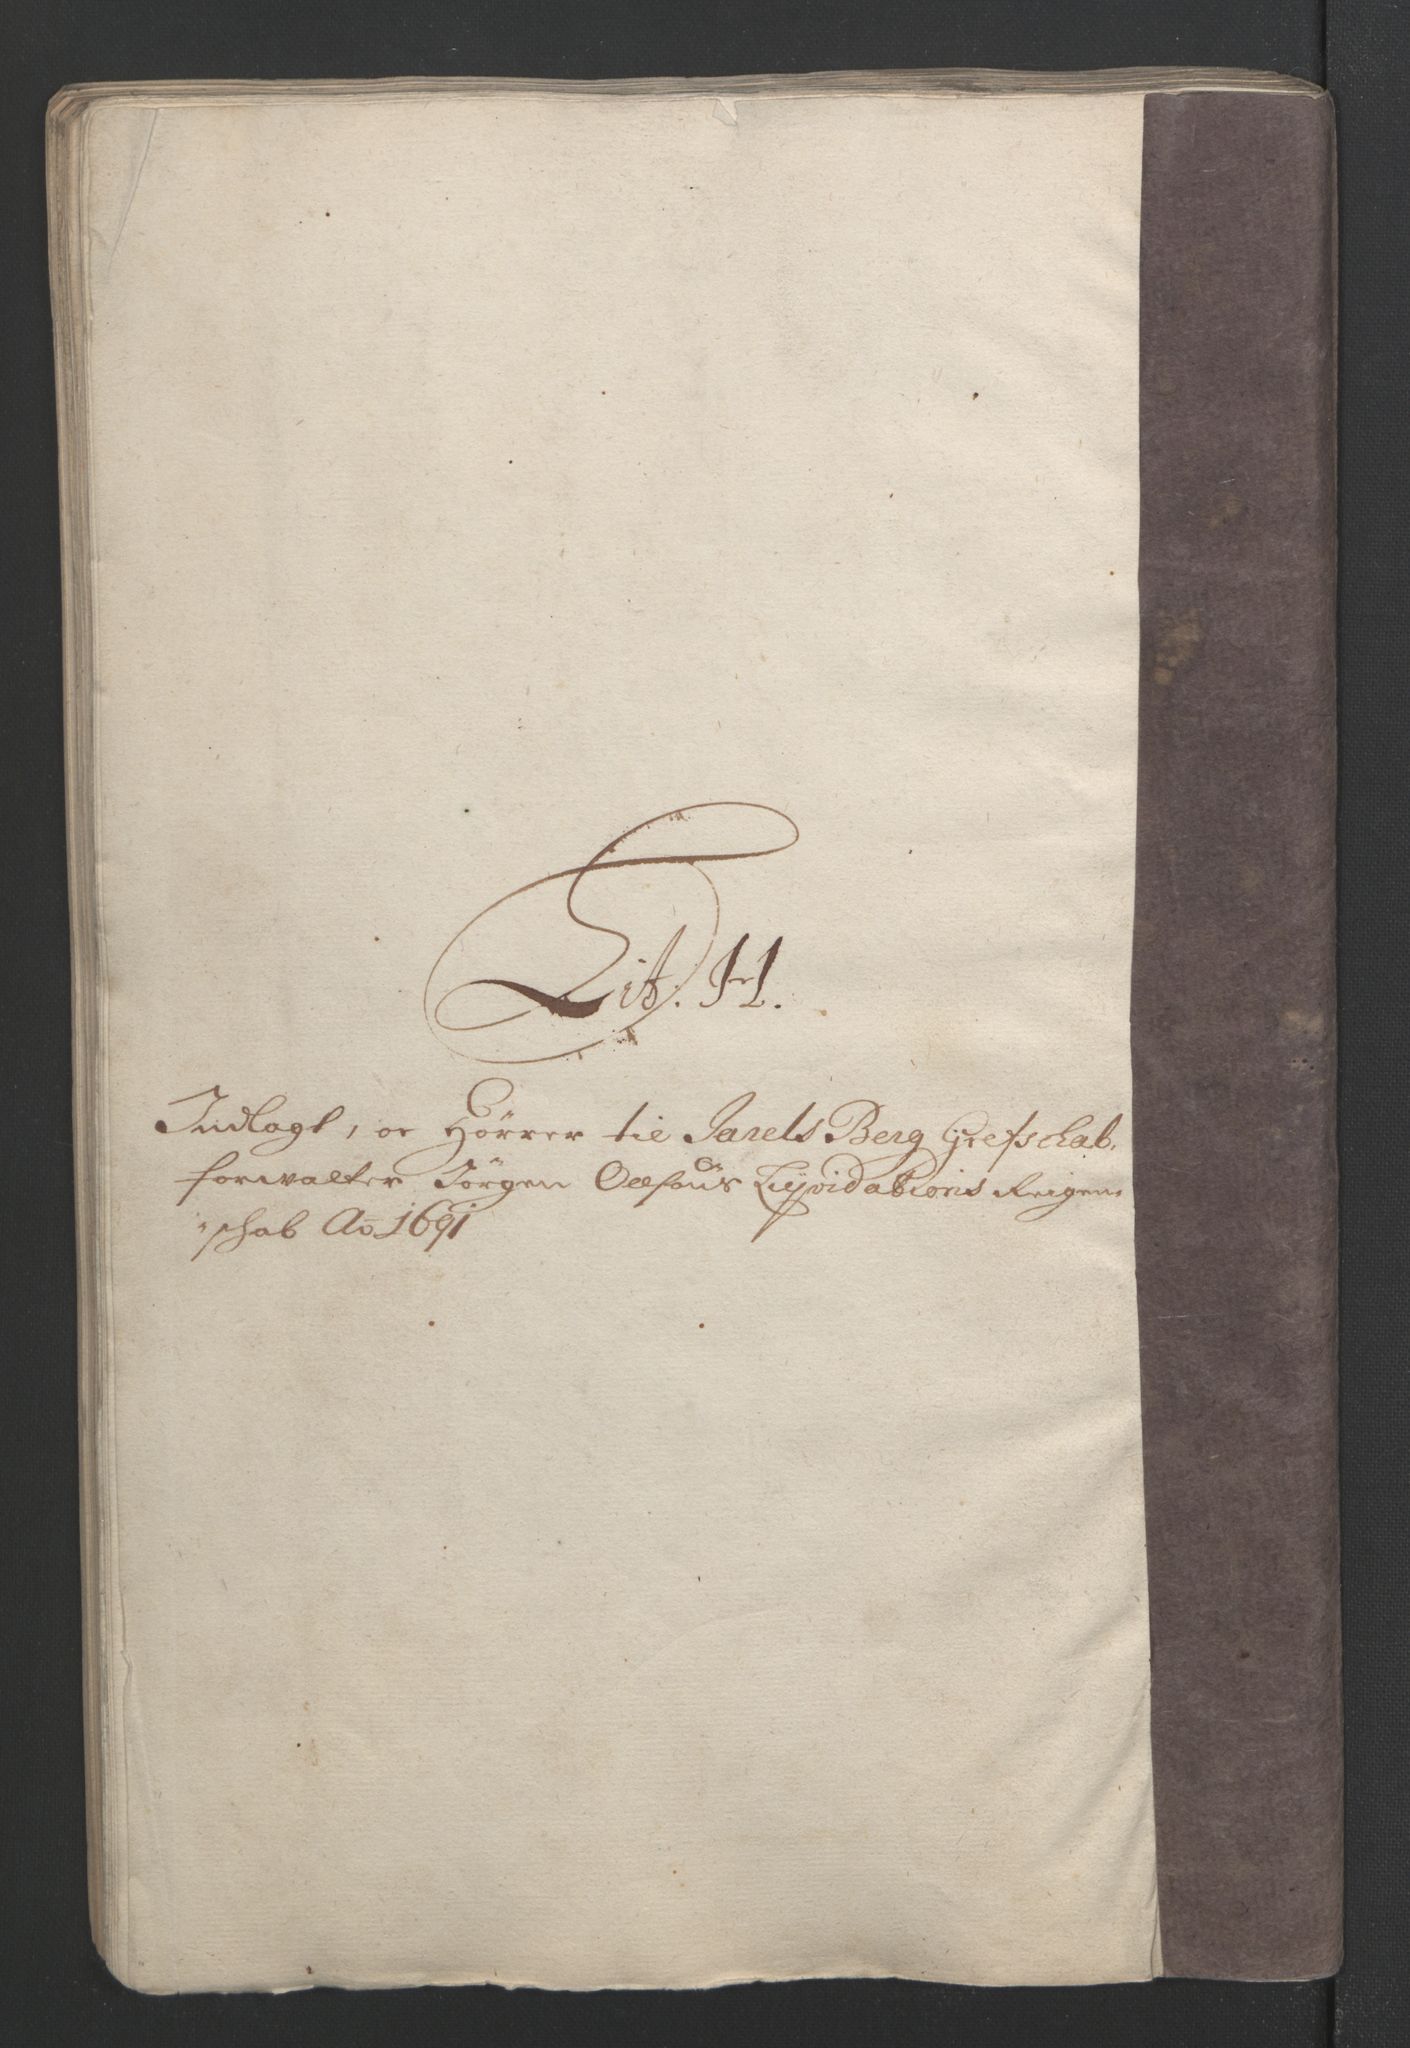 Lit. H.
Indlagt, oc Hörrer til Jarels Berg Grefschab,
forwalter Jörgen Oelsöns Liqvidations Reigen,
schab Ao 1691